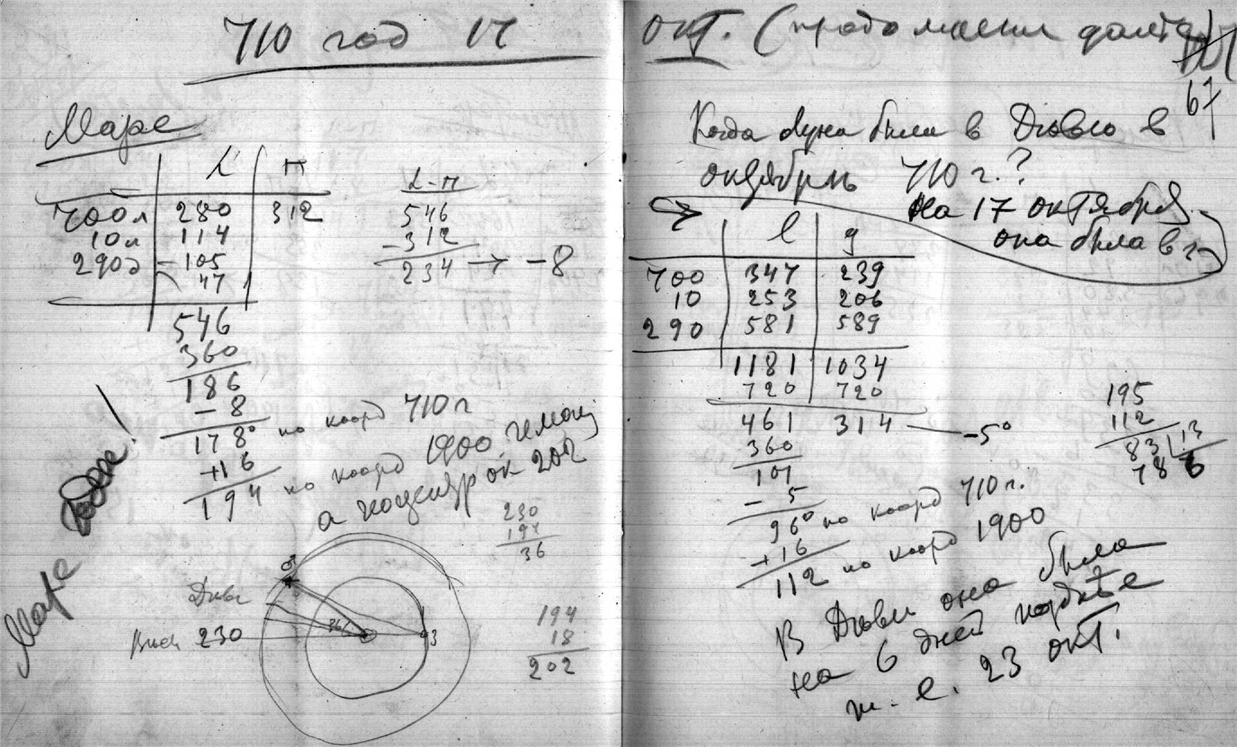 710 год 17
Марс
L π
700л 280 312
10л 114
290д 105
47
546
360
186
- 8
178° по коорд 710 г
+16
194 по коорд 1900
а ок 202
L-π
546
-312
234 → -8
Марс
230
194
36
♂
Весы 230
36
194
18
202
окт. (
67
Когда луна была в Дѣвѣ в
октябрѣ 710 г.?
На 17 октября
она была в
l g
700 347 239
10 253 206
290 581 589
1181 1034
720 720
461 314 — -5°
360
101
- 5
96° по коорд 710 г.
+16
112 по коорд 1900
195
112
83 13
78 6
В Дѣвѣ она была
на 6 дней позднѣе
т. е. 23 окт.